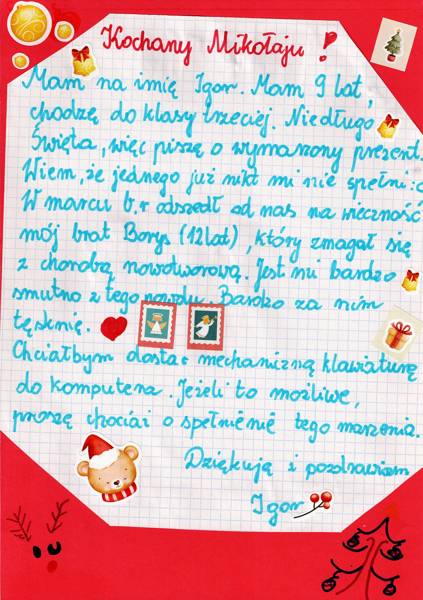 Kochany Mikołaju !
Mam na imię Igor. Mam 9 lat,
chodzę do klasy trzeciej. Niedługo
Święta, więc piszę o wymarzony prezent.
Wiem, że jednego już nikt mi nie spełni :(
W marcu b.r odszedł od nas na wieczność
mój brat Borys (12 lat), który zmagał się
z chorobą nowotworową. Jest mi bardzo
smutno z tego powodu. Bardzo za nim
tęsknię.
Chciałbym dostać mechaniczną klawiaturę
do komputera. Jeżeli to możliwe,
proszę chociaż o spełnienie tego marzenia.
Dziękuję i pozdrawiam
Igor